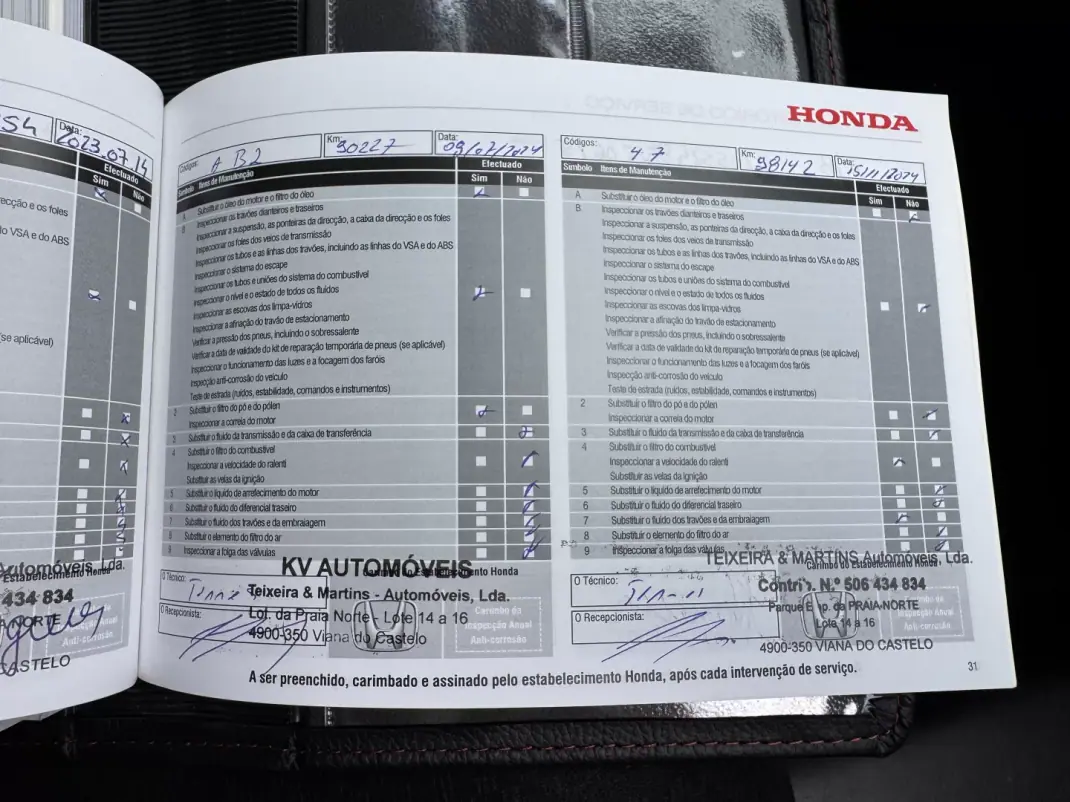 HONDA
Data:
2023.07.14
Efectuado
Sim
Não
ecção e os foles
do VSA e do ABS
(se aplicável)
Automóveis, Lda.
Estabelecimento Honda
434 834
Anti-corrosão
CASTELO
Códigos:
A B2
Km:
90227
Data:
09/07/2024
Símbolo
Itens de Manutenção
Efectuado
Sim
Não
A
Substituir o óleo do motor e o filtro do óleo
B
Inspeccionar os travões dianteiros e traseiros
Inspeccionar a suspensão, as ponteiras da direcção, a caixa da direcção e os foles
Inspeccionar os foles dos veios de transmissão
Inspeccionar os tubos e as linhas dos travões, incluindo as linhas do VSA e do ABS
Inspeccionar o sistema do escape
Inspeccionar os tubos e uniões do sistema do combustível
Inspeccionar o nível e o estado de todos os fluidos
Inspeccionar as escovas dos limpa-vidros
Inspeccionar a afinação do travão de estacionamento
Verificar a pressão dos pneus, incluindo o sobressalente
Verificar a data de validade do kit de reparação temporária de pneus (se aplicável)
Inspeccionar o funcionamento das luzes e a focagem dos faróis
Inspecção anti-corrosão do veículo
Teste de estrada (ruídos, estabilidade, comandos e instrumentos)
2
Substituir o filtro do pó e do pólen
Inspeccionar a correia do motor
3
Substituir o fluido da transmissão e da caixa de transferência
4
Substituir o filtro do combustível
Inspeccionar a velocidade do ralenti
Substituir as velas da ignição
5
Substituir o líquido de arrefecimento do motor
6
Substituir o fluido do diferencial traseiro
7
Substituir o fluido dos travões e da embraiagem
8
Substituir o elemento do filtro do ar
9
Inspeccionar a folga das válvulas
KV AUTOMÓVEIS
Carimbo do Estabelecimento Honda
O Técnico:
Teixeira & Martins - Automóveis, Lda.
O Recepcionista:
Lot. da Praia Norte - Lote 14 a 16
4900-350 Viana do Castelo
Carimbo da
Inspecção Anual
Anti-corrosão
Códigos:
4 7
Km:
98142
Data:
15/11/2024
Símbolo
Itens de Manutenção
Efectuado
Sim
Não
A
Substituir o óleo do motor e o filtro do óleo
B
Inspeccionar os travões dianteiros e traseiros
Inspeccionar a suspensão, as ponteiras da direcção, a caixa da direcção e os foles
Inspeccionar os foles dos veios de transmissão
Inspeccionar os tubos e as linhas dos travões, incluindo as linhas do VSA e do ABS
Inspeccionar o sistema do escape
Inspeccionar os tubos e uniões do sistema do combustível
Inspeccionar o nível e o estado de todos os fluidos
Inspeccionar as escovas dos limpa-vidros
Inspeccionar a afinação do travão de estacionamento
Verificar a pressão dos pneus, incluindo o sobressalente
Verificar a data de validade do kit de reparação temporária de pneus (se aplicável)
Inspeccionar o funcionamento das luzes e a focagem dos faróis
Inspecção anti-corrosão do veículo
Teste de estrada (ruídos, estabilidade, comandos e instrumentos)
2
Substituir o filtro do pó e do pólen
Inspeccionar a correia do motor
3
Substituir o fluido da transmissão e da caixa de transferência
4
Substituir o filtro do combustível
Inspeccionar a velocidade do ralenti
Substituir as velas da ignição
5
Substituir o líquido de arrefecimento do motor
6
Substituir o fluido do diferencial traseiro
7
Substituir o fluido dos travões e da embraiagem
8
Substituir o elemento do filtro do ar
9
Inspeccionar a folga das válvulas
TEIXEIRA & MARTINS Automóveis, Lda.
Carimbo do Estabelecimento Honda
O Técnico:
Contrib. N.º 506 434 834
O Recepcionista:
Parque Emp. da PRAIA-NORTE
Lote 14 a 16
4900-350 VIANA DO CASTELO
Carimbo da
Inspecção Anual
Anti-corrosão
A ser preenchido, carimbado e assinado pelo estabelecimento Honda, após cada intervenção de serviço.
31